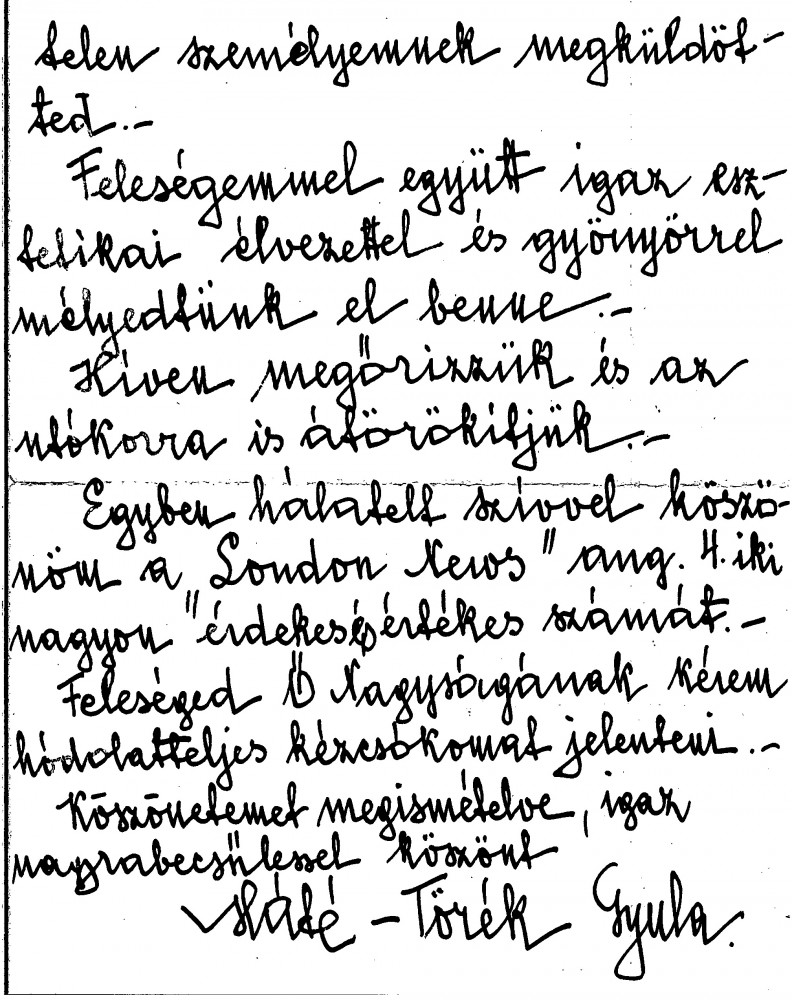 telen személyemnek megküldöt-
ted.-
Feleségemmel együtt igaz esz-
tetikai élvezettel és gyönyörrel
mélyedtünk el benne.-
Híven megőrizzük és az
utókorra is átörökítjük.-
Egyben hálatelt szívvel köszö-
nöm a London News" aug. 4.iki
nagyon "érdekes és értékes számát.-
Feleséged Ő Nagyságának kérem
hódolatteljes kézcsókomat jelenteni.-
Köszönetemet megismételve, igaz
nagyrabecsüléssel köszönt
Máté-Törék Gyula.